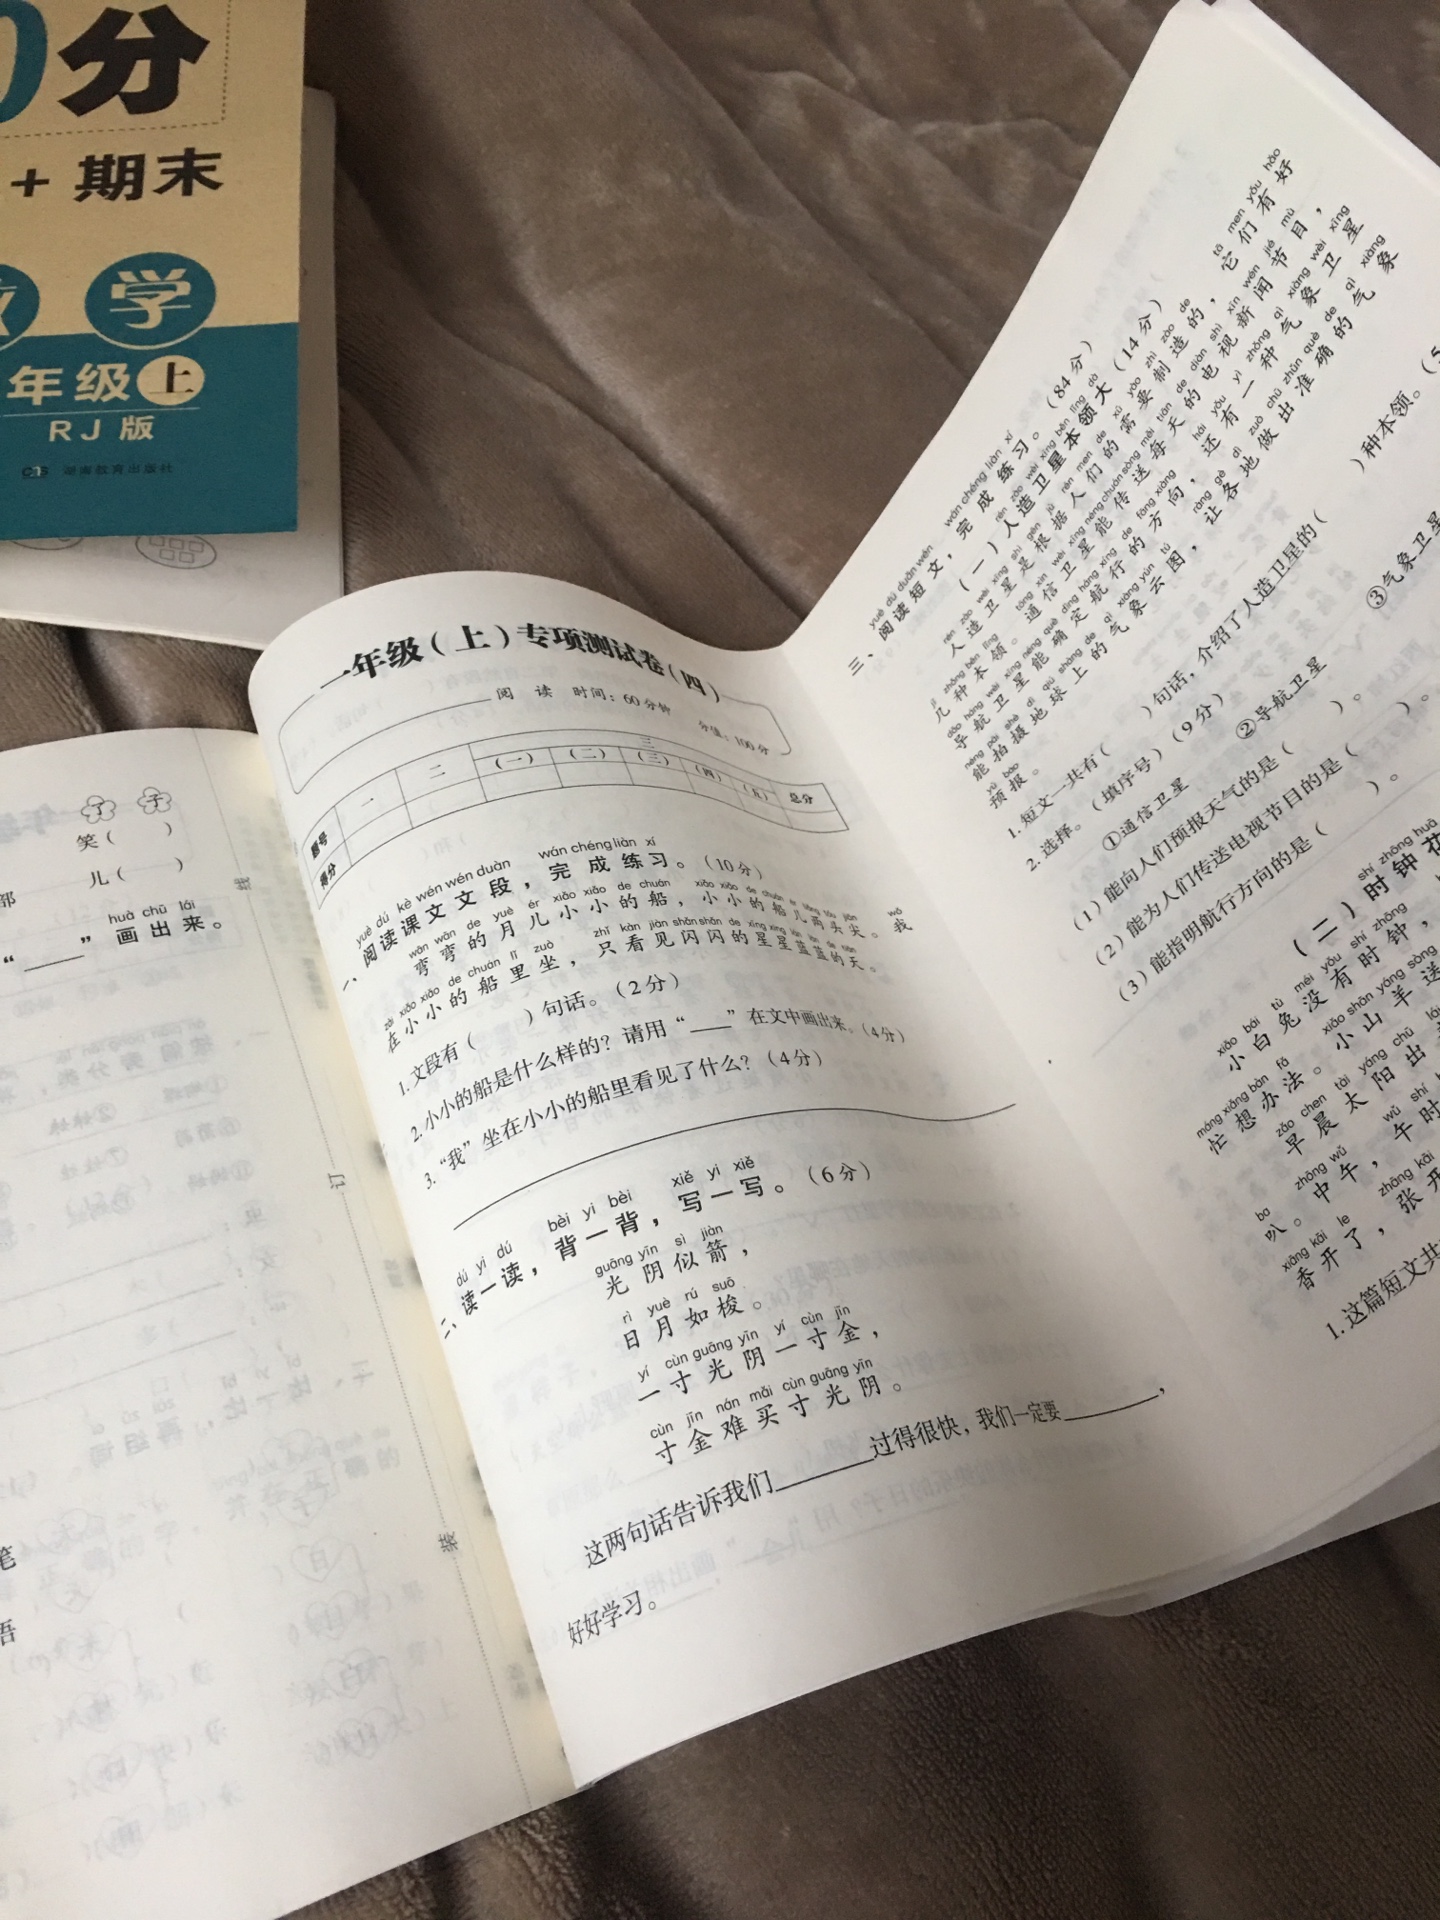 0分
+ 期末
学
年级 上
RJ版
湖南教育出版社
了 子
笑( )
部 儿( )
huà chū lái
“____” 画出来。
笔
语
线
订
装
一年级(上)专项测试卷(四)
阅 读 时间：60分钟 分值：100分
题号 一 二 三 总分
(一) (二) (三) (四) (五)
得分
yuè dú kè wén wén duàn wán chéng liàn xí
一、阅读课文文段，完成练习。(10分)
wān wān de yuè ér xiǎo xiǎo de chuán xiǎo xiǎo de chuán ér liǎng tóu jiān wǒ
弯弯的月儿小小的船，小小的船儿两头尖。我
zài xiǎo xiǎo de chuán lǐ zuò zhǐ kàn jiàn shǎn shǎn de xīng xing lán lán de tiān
在小小的船里坐，只看见闪闪的星星蓝蓝的天。
1.文段有( )句话。(2分)
2.小小的船是什么样的？请用“____”在文中画出来。(4分)
3.“我”坐在小小的船里看见了什么？(4分)
dú yi dú bèi yi bèi xiě yi xiě
二、读一读，背一背，写一写。(6分)
guāng yīn sì jiàn
光阴似箭，
rì yuè rú suō
日月如梭。
yí cùn guāng yīn yí cùn jīn
一寸光阴一寸金，
cùn jīn nán mǎi cùn guāng yīn
寸金难买寸光阴。
这两句话告诉我们________过得很快，我们一定要________，
好好学习。
yuè dú duǎn wén wán chéng liàn xí
三、阅读短文，完成练习。(84分)
rén zào wèi xīng běn lǐng dà
(一)人造卫星本领大(14分)
rén zào wèi xīng shì gēn jù rén men de xū yào zhì zào de tā men yǒu hǎo
人造卫星是根据人们的需要制造的，它们有好
jǐ zhǒng běn lǐng tōng xìn wèi xīng néng chuán sòng měi tiān de diàn shì xīn wén jié mù
几种本领。通信卫星能传送每天的电视新闻节目，
dǎo háng wèi xīng néng què dìng háng xíng de fāng xiàng hái yǒu yì zhǒng qì xiàng wèi xīng
导航卫星能确定航行的方向，还有一种气象卫星
néng pāi shè dì qiú shàng de qì xiàng yún tú ràng gè dì zuò chū zhǔn què de qì xiàng
能拍摄地球上的气象云图，让各地做出准确的气象
yù bào
预报。
1.短文一共有( )句话，介绍了人造卫星的( )种本领。(5
2.选择。(填序号)(9分)
①通信卫星 ②导航卫星 ③气象卫星
(1)能向人们预报天气的是( )。
(2)能为人们传送电视节目的是( )。
(3)能指明航行方向的是( )。
shí zhōng huā
(二)时钟花
xiǎo bái tù méi yǒu shí zhōng xiǎo shān yáng sòng
小白兔没有时钟，小山羊送
máng xiǎng bàn fǎ
忙想办法。
zǎo chen tài yáng chū lái
早晨太阳出
zhōng wǔ wǔ shí
中午，午时
ba zhāng kāi
叭。张开
xiāng kāi le
香开了，
1.这篇短文共